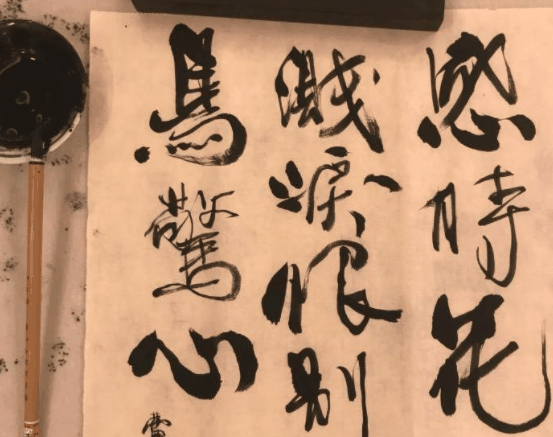 感時花
濺淚恨別
鳥驚心